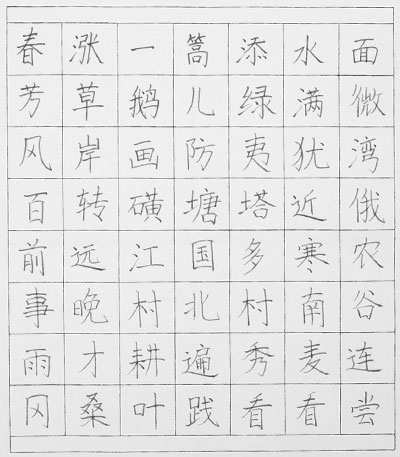 春涨一篙添水面
芳草鹅儿绿满微
风岸画防夷犹湾
百转磺塘塔近俄
前远江国多寒农
事晚村北村南谷
雨才耕遍秀麦连
冈桑叶践看看尝